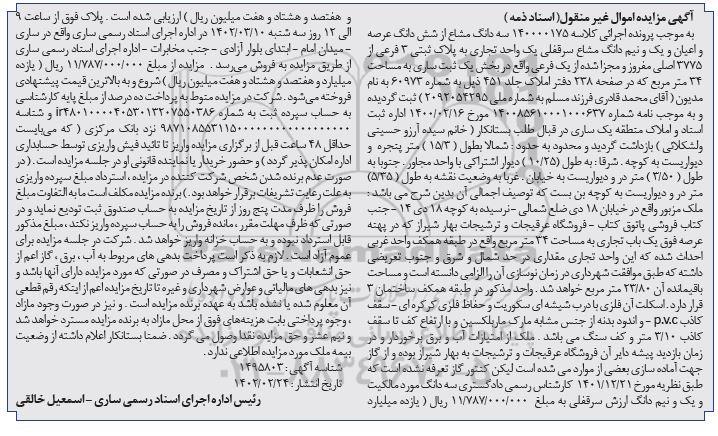 آگهی مزایده اموال غیر منقول( اسناد ذمه )
به موجب پرونده اجرائی کلاسه ۱۴۰۰۰۰۱۷۵ سه دانگ مشاع از شش دانگ عرصه
و اعیان و یک و نیم دانگ مشاع سرقفلی یک واحد تجاری به پلاک ثبتی ۳ فرعی از
۳۷۷۵ اصلی مفروز و مجزا شده از یک فرعی واقع در بخش یک ثبت ساری به مساحت
۳۴ متر مربع که در صفحه ۲۳۸ دفتر املاک جلد ۴۵۱ ذیل به شماره ۶۰۹۷۳ به نام
مدیون ( آقای محمد قادری فرزند مسلم به شماره ملی ۲۰۹۲۰۵۴۲۹۵ ) ثبت گردیده
و به موجب نامه شماره ۱۴۰۰۸۵۶۱۰۰۰۱۰۰۰۶۳۷ مورخ ۱۴۰۰/۰۲/۱۶ اداره ثبت
اسناد و املاک منطقه یک ساری در قبال طلب بستانکار ( خانم سیده آرزو حسینی
ولشکلائی ) بازداشت گردید و محدود به حدود : شمالا بطول ( ۱۵/۳ ) متر پنجره و
دیواریست به کوچه . شرقا : به طول ( ۱۰/۲۵ ) دیوار اشتراکی با واحد مجاور . جنوبا به
طول ( ۳/۵۰ ) متر در و دیواریست به خیابان . غربا به وضعیت نقشه به طول ( ۵/۳۵ )
متر در و دیواریست به کوچه بن بست که توصیف اجمالی آن بدین شرح می باشد :
ملک مزبور واقع در خیابان ۱۸ دی ضلع شمالی -نرسیده به کوچه ۱۸ دی ۱۴ - جنب
کتاب فروشی پاتوق کتاب - فروشگاه عرقیجات و ترشیجات بهار شیراز که در پهنه
عرصه فوق یک باب تجاری به مساحت ۳۴ متر مربع واقع در طبقه همکف واحد غربی
احداث شده که این واحد تجاری مقداری در حد شمال و شرق و جنوب تعریضی
داشته که طبق موافقت شهرداری در زمان نوسازی آن را الزامی دانسته است و مساحت
باقیمانده آن ۲۳/۸۰ متر مربع خواهد شد . واحد مذکور در طبقه همکف ساختمان ۳
قرار دارد . اسکلت آن فلزی با درب شیشه ای سکوریت و حفاظ فلزی کرکره ای - سقف
کاذب p.v.c - و اندود بدنه از جنس مشابه مارک ماربلکسین و با ارتفاع کف تا سقف
کاذب ۳/۱۰ متر و کف سنگ می باشد . ملک از امتیازات آب و برق برخوردار و در
زمان بازدید پیشه دایر آن فروشگاه عرقیجات و ترشیجات به بهار شیراز بوده و از گاز
جهت آماده سازی بعضی از موارد می شده است لیکن کنتور گاز تعرفه نشده است که
طبق نظریه مورخ ۱۴۰۱/۱۲/۲۱ کارشناس رسمی دادگستری سه دانگ مورد مالکیت
و یک و نیم دانگ ارزش سرقفلی به مبلغ ۱۱/۷۸۷/۰۰۰/۰۰۰ ریال ( یازده میلیارد
و هفتصد و هشتاد و هفت میلیون ریال ) ارزیابی شده است . پلاک فوق از ساعت ۹
الی ۱۲ روز سه شنبه ۱۴۰۲/۰۳/۱۰ در اداره اجرای اسناد رسمی ساری واقع در ساری
-میدان امام - ابتدای بلوار آزادی - جنب مخابرات - اداره اجرای اسناد رسمی ساری
از طریق مزایده به فروش می‌رسد . مزایده از مبلغ ۱۱/۷۸۷/۰۰۰/۰۰۰ ریال ( یازده
میلیارد و هفتصد و هشتاد و هفت میلیون ریال ) شروع و به بالاترین قیمت پیشنهادی
فروخته می‌شود. شرکت در مزایده منوط به پرداخت ده درصد از مبلغ پایه کارشناسی
به حساب سپرده ثبت به شماره و شناسه
نزد بانک مرکزی ( که می‌بایست
حداقل ۴۸ ساعت قبل از برگزاری مزایده واریز تا تائید فیش واریزی توسط حسابداری
اداره امکان پذیر گردد ) و حضور خریدار یا نماینده قانونی او در جلسه مزایده است . ( در
صورت عدم برنده شدن شخص شرکت کننده در مزایده ، استرداد مبلغ سپرده واریزی
به علت رعایت تشریفات برقرار خواهد بود. ) برنده مزایده مکلف است ما به التفاوت مبلغ
فروش را ظرف مدت پنج روز از تاریخ مزایده به حساب صندوق ثبت تودیع نماید و در
صورتی که ظرف مهلت مقرر ، مانده فروش را به حساب سپرده واریز نکند ، مبلغ مذکور
قابل استرداد نبوده و به حساب خزانه واریز خواهد شد . شرکت در جلسه مزایده برای
عموم آزاد است . لازم به ذکر است پرداخت بدهی های مربوط به آب ، برق ، گاز اعم از
حق انشعابات و یا حق اشتراک و مصرف در صورتی که مورد مزایده دارای آنها باشد و
نیز بدهی های مالیاتی و عوارض شهرداری و غیره تا تاریخ مزایده اعم از اینکه رقم قطعی
آن معلوم شده یا نشده باشد به عهده برنده مزایده است . و نیز در صورت وجود مازاد
، وجوه پرداختی بابت هزینه‌های فوق از محل مازاد به برنده مزایده مسترد خواهد شد
و نیم عشر و حق مزایده نقدا وصول می گردد . ضمنا بستانکار اعلام داشته از وضعیت
بیمه ملک مورد مزایده اطلاعی ندارد .
شناسه آگهی : ۱۴۹۵۸۰۳
تاریخ انتشار : ۱۴۰۲/۰۲/۲۴
رئیس اداره اجرای اسناد رسمی ساری - اسمعیل خالقی